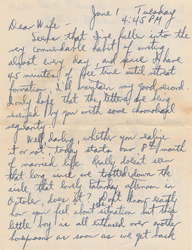 June 1 Tuesday
4:45 PM
Dear Wife -
Seems that I've fallen into the
very commendable habit of writing
almost every day, and since I have
45 minutes of free time until retreat
formation, I'll maintain my good record.
I only hope that the letters are being
received by you with some chronological
regularity.
Well darling, whether you realize
it or not today starts our 8th month
of married life. Really doesn't seem
that long since we trotted down the
aisle that lovely Saturday afternoon in
October, does it? I don't know exactly
how you feel about situation but this
little boy is all enthused over another
as soon as we get back